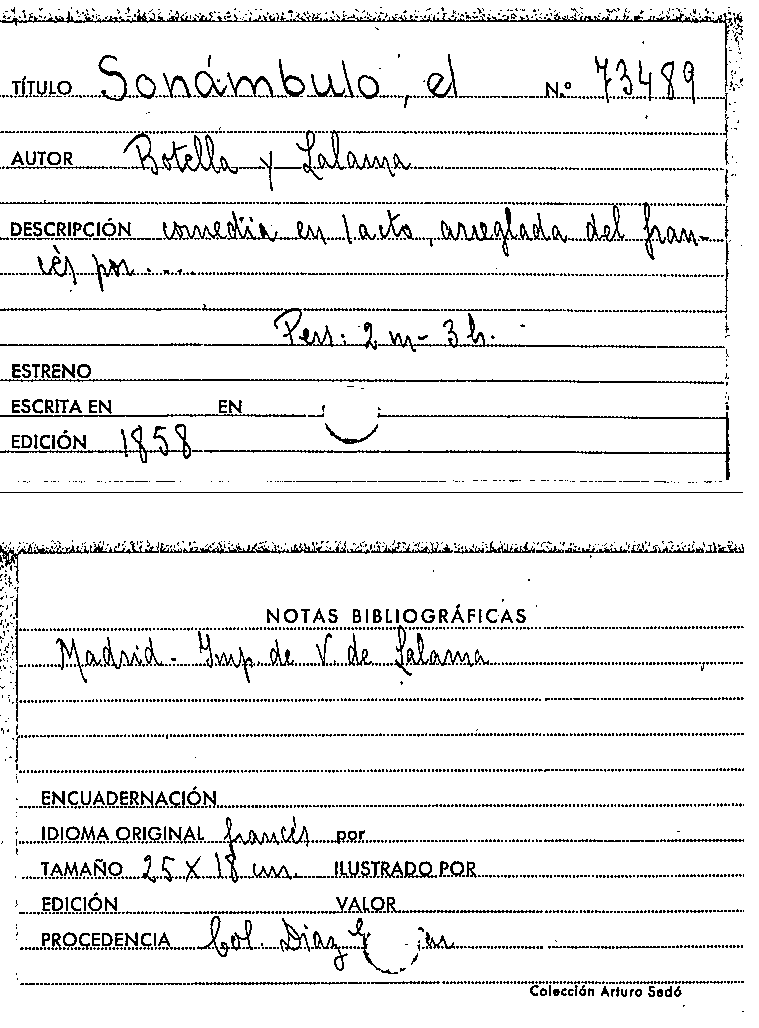 TÍTULO Sonámbulo, el N.º 73489
AUTOR Botella y Lalama
DESCRIPCIÓN comedia en 1 acto, arreglada del fran-
cès por....
Pers: 2 m- 3 h.
ESTRENO
ESCRITA EN EN
EDICIÓN 1858
NOTAS BIBLIOGRÁFICAS
Madrid - Imp. de V. de Lalama
ENCUADERNACIÓN
IDIOMA ORIGINAL francés por
TAMAÑO 25 X 18 cm. ILUSTRADO POR
EDICIÓN VALOR
PROCEDENCIA Col. Diaz
Colección Arturo Sedó